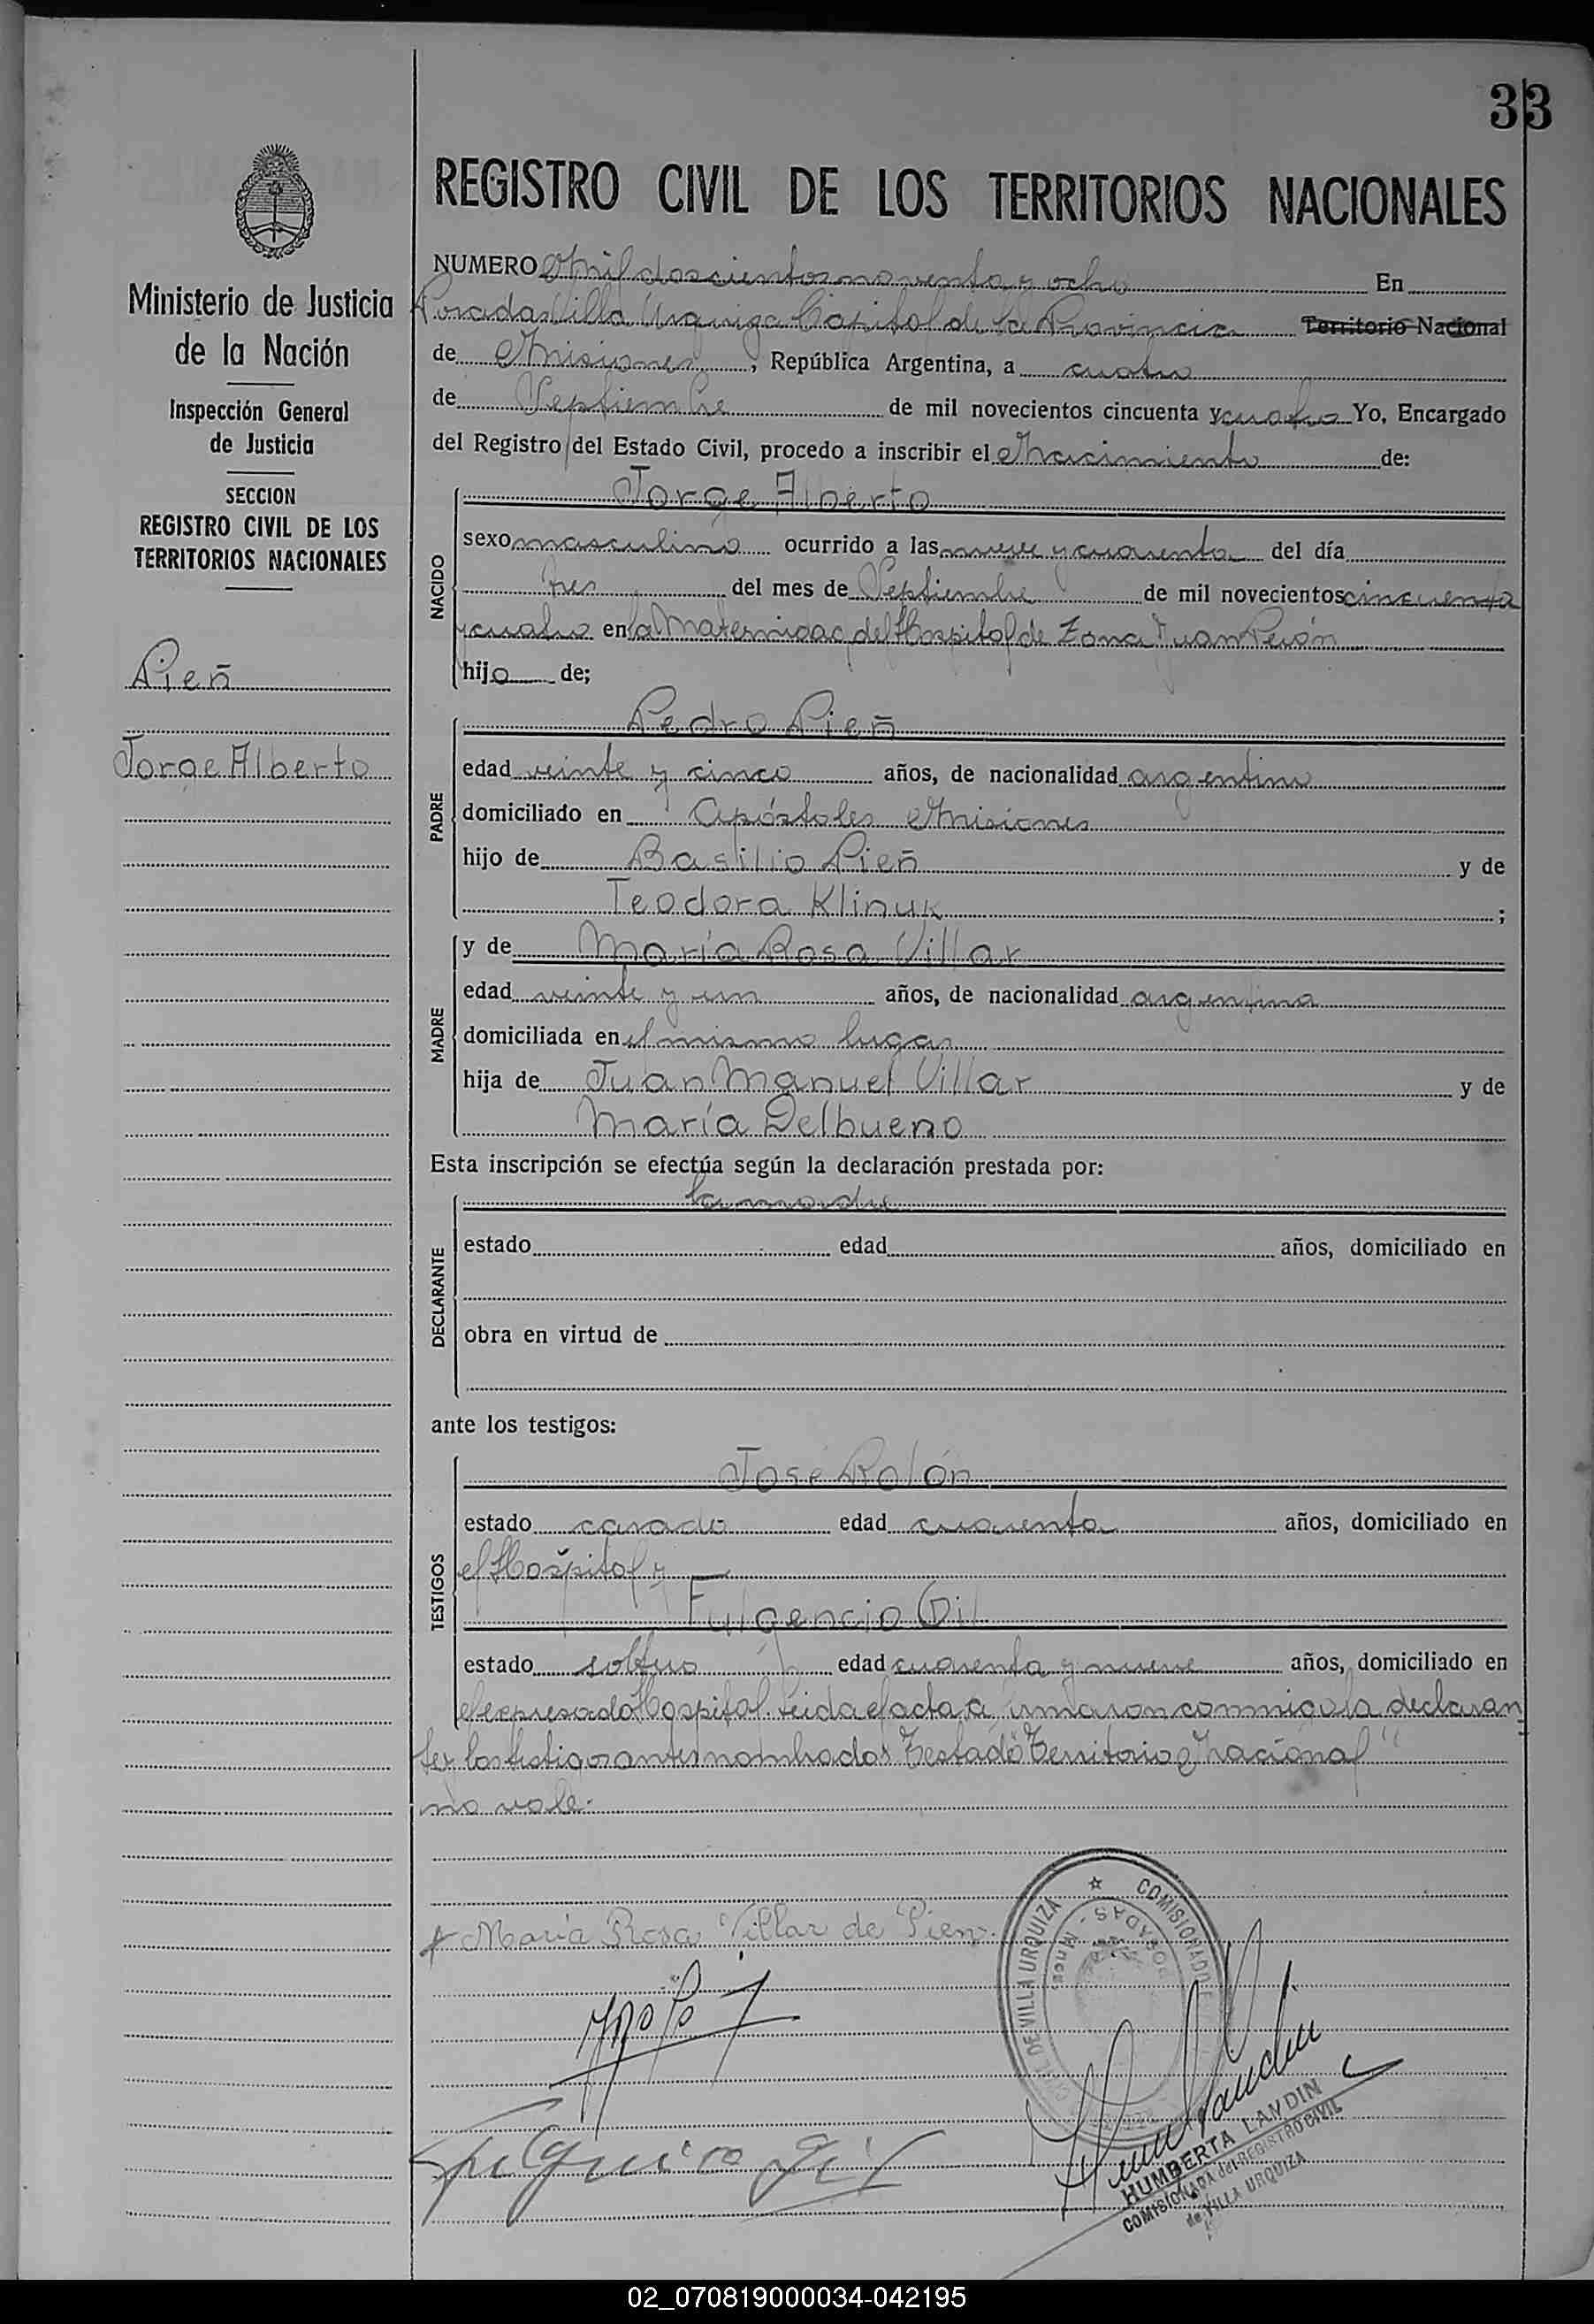 33
REGISTRO CIVIL DE LOS TERRITORIOS NACIONALES
Ministerio de Justicia
de la Nación
Inspección General
de Justicia
SECCION
REGISTRO CIVIL DE LOS
TERRITORIOS NACIONALES
Pieñ
Jorge Alberto
NUMERO Mil doscientos noventa y ocho En
Posadas Villa Urquiza Capital de la Provincia Territorio Nacional
de Misiones, República Argentina, a cuatro
de Septiembre de mil novecientos cincuenta y cuatro Yo, Encargado
del Registro del Estado Civil, procedo a inscribir el Nacimiento de:
NACIDO
Jorge Alberto
sexo masculino ocurrido a las nueve y cuarenta del día
tres del mes de Septiembre de mil novecientos cincuenta
y cuatro en la Maternidad del Hospital de Zona Juan Perón
hijo de;
PADRE
Pedro Pieñ
edad veinte y cinco años, de nacionalidad argentino
domiciliado en Apóstoles Misiones
hijo de Basilio Pieñ y de
Teodora Klinuk ;
MADRE
y de María Rosa Villar
edad veinte y un años, de nacionalidad argentina
domiciliada en el mismo lugar
hija de Juan Manuel Villar y de
María Delbueno
Esta inscripción se efectúa según la declaración prestada por:
DECLARANTE
la madre
estado edad años, domiciliado en
obra en virtud de
ante los testigos:
TESTIGOS
José Rolón
estado casado edad cuarenta años, domiciliado en
el Hospital y
Fulgencio Gil
estado soltero edad cuarenta y nueve años, domiciliado en
el expresado Hospital. Leida el acta la firmaron conmigo la declaran
te y los testigos antes nombrados Testado "Territorio Nacional"
no vale.
María Rosa Villar de Pieñ.
Fulgencio Gil
COMISIONADO
DE VILLA URQUIZA
POSADAS - Mnes
HUMBERTA LANDIN
COMISIONADA del REGISTRO CIVIL
de VILLA URQUIZA
02_070819000034-042195